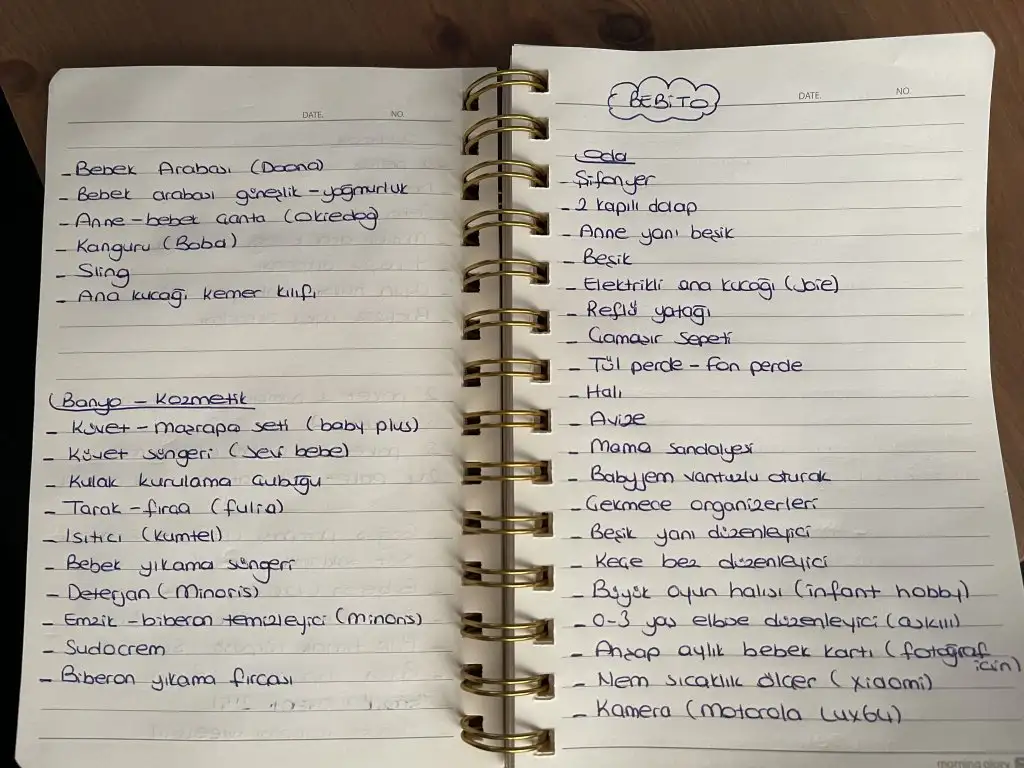 DATE. NO.
- Bebek Arabası (Doona)
- Bebek arabası güneşlik - yağmurluk
- Anne - bebek çanta (Okiedog)
- Kanguru (Boba)
- Sling
- Ana kucağı kemer kılıfı
Banyo - Kozmetik
- Küvet - maşrapa seti (baby plus)
- Küvet süngeri (sevi bebe)
- Kulak kurulama çubuğu
- Tarak - fırça (fulia)
- Isıtıcı (Kumtel)
- Bebek yıkama süngeri
- Deterjan (Minoris)
- Emzik - biberon temizleyici (minoris)
- Sudocrem
- Biberon yıkama fırçası
BEBiTO
DATE. NO.
Oda
- Şifonyer
- 2 kapılı dolap
- Anne yanı beşik
- Beşik
- Elektrikli ana kucağı (Joie)
- Reflü yatağı
- Çamaşır sepeti
- Tül perde - fon perde
- Halı
- Avize
- Mama sandalyesi
- Babyjem vantuzlu oturak
- Çekmece organizerleri
- Beşik yanı düzenleyici
- Keçe bez düzenleyici
- Büyük oyun halısı (infant hobby)
- 0-3 yaş elbise düzenleyici (askılı)
- Ahşap aylık bebek kartı (fotoğraf
için)
- Nem sıcaklık ölçer (xiaomi)
- Kamera (Motorola Lux64)
morning glory